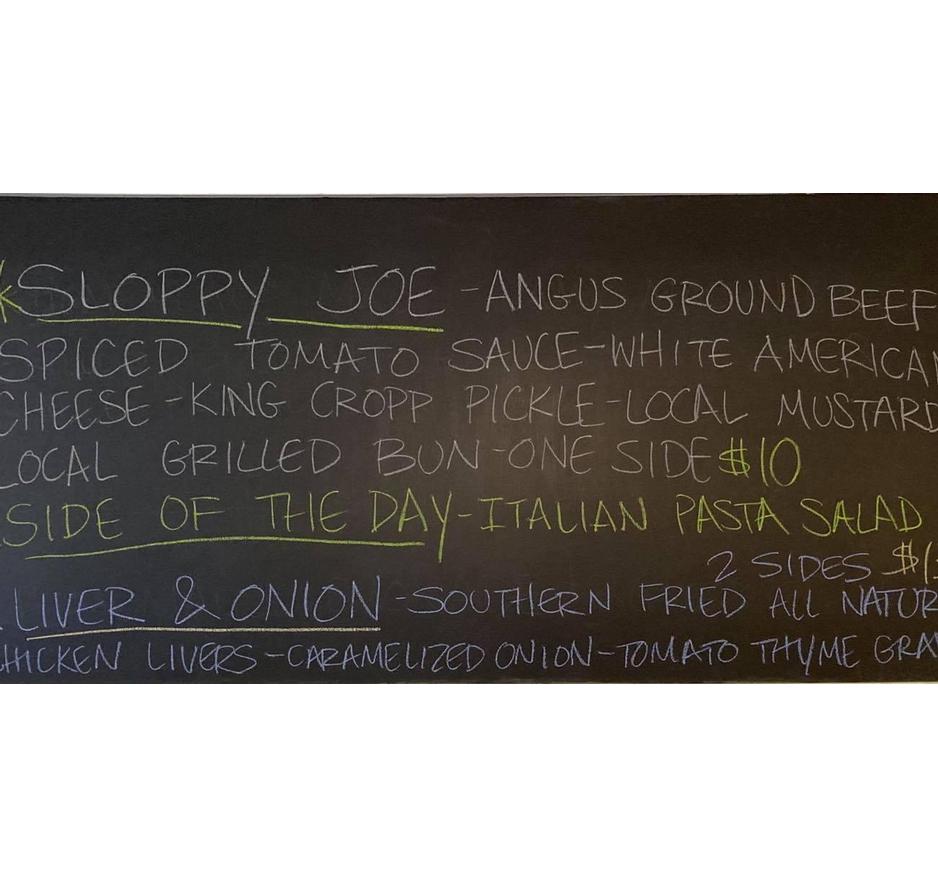 *SLOPPY JOE -ANGUS GROUND BEEF
SPICED TOMATO SAUCE-WHITE AMERICAN
CHEESE-KING CROPP PICKLE-LOCAL MUSTARD
LOCAL GRILLED BUN-ONE SIDE $10
SIDE OF THE DAY-ITALIAN PASTA SALAD
2 SIDES
LIVER & ONION-SOUTHERN FRIED ALL NATUR
CHICKEN LIVERS-CARAMELIZED ONION-TOMATO THYME GRAV